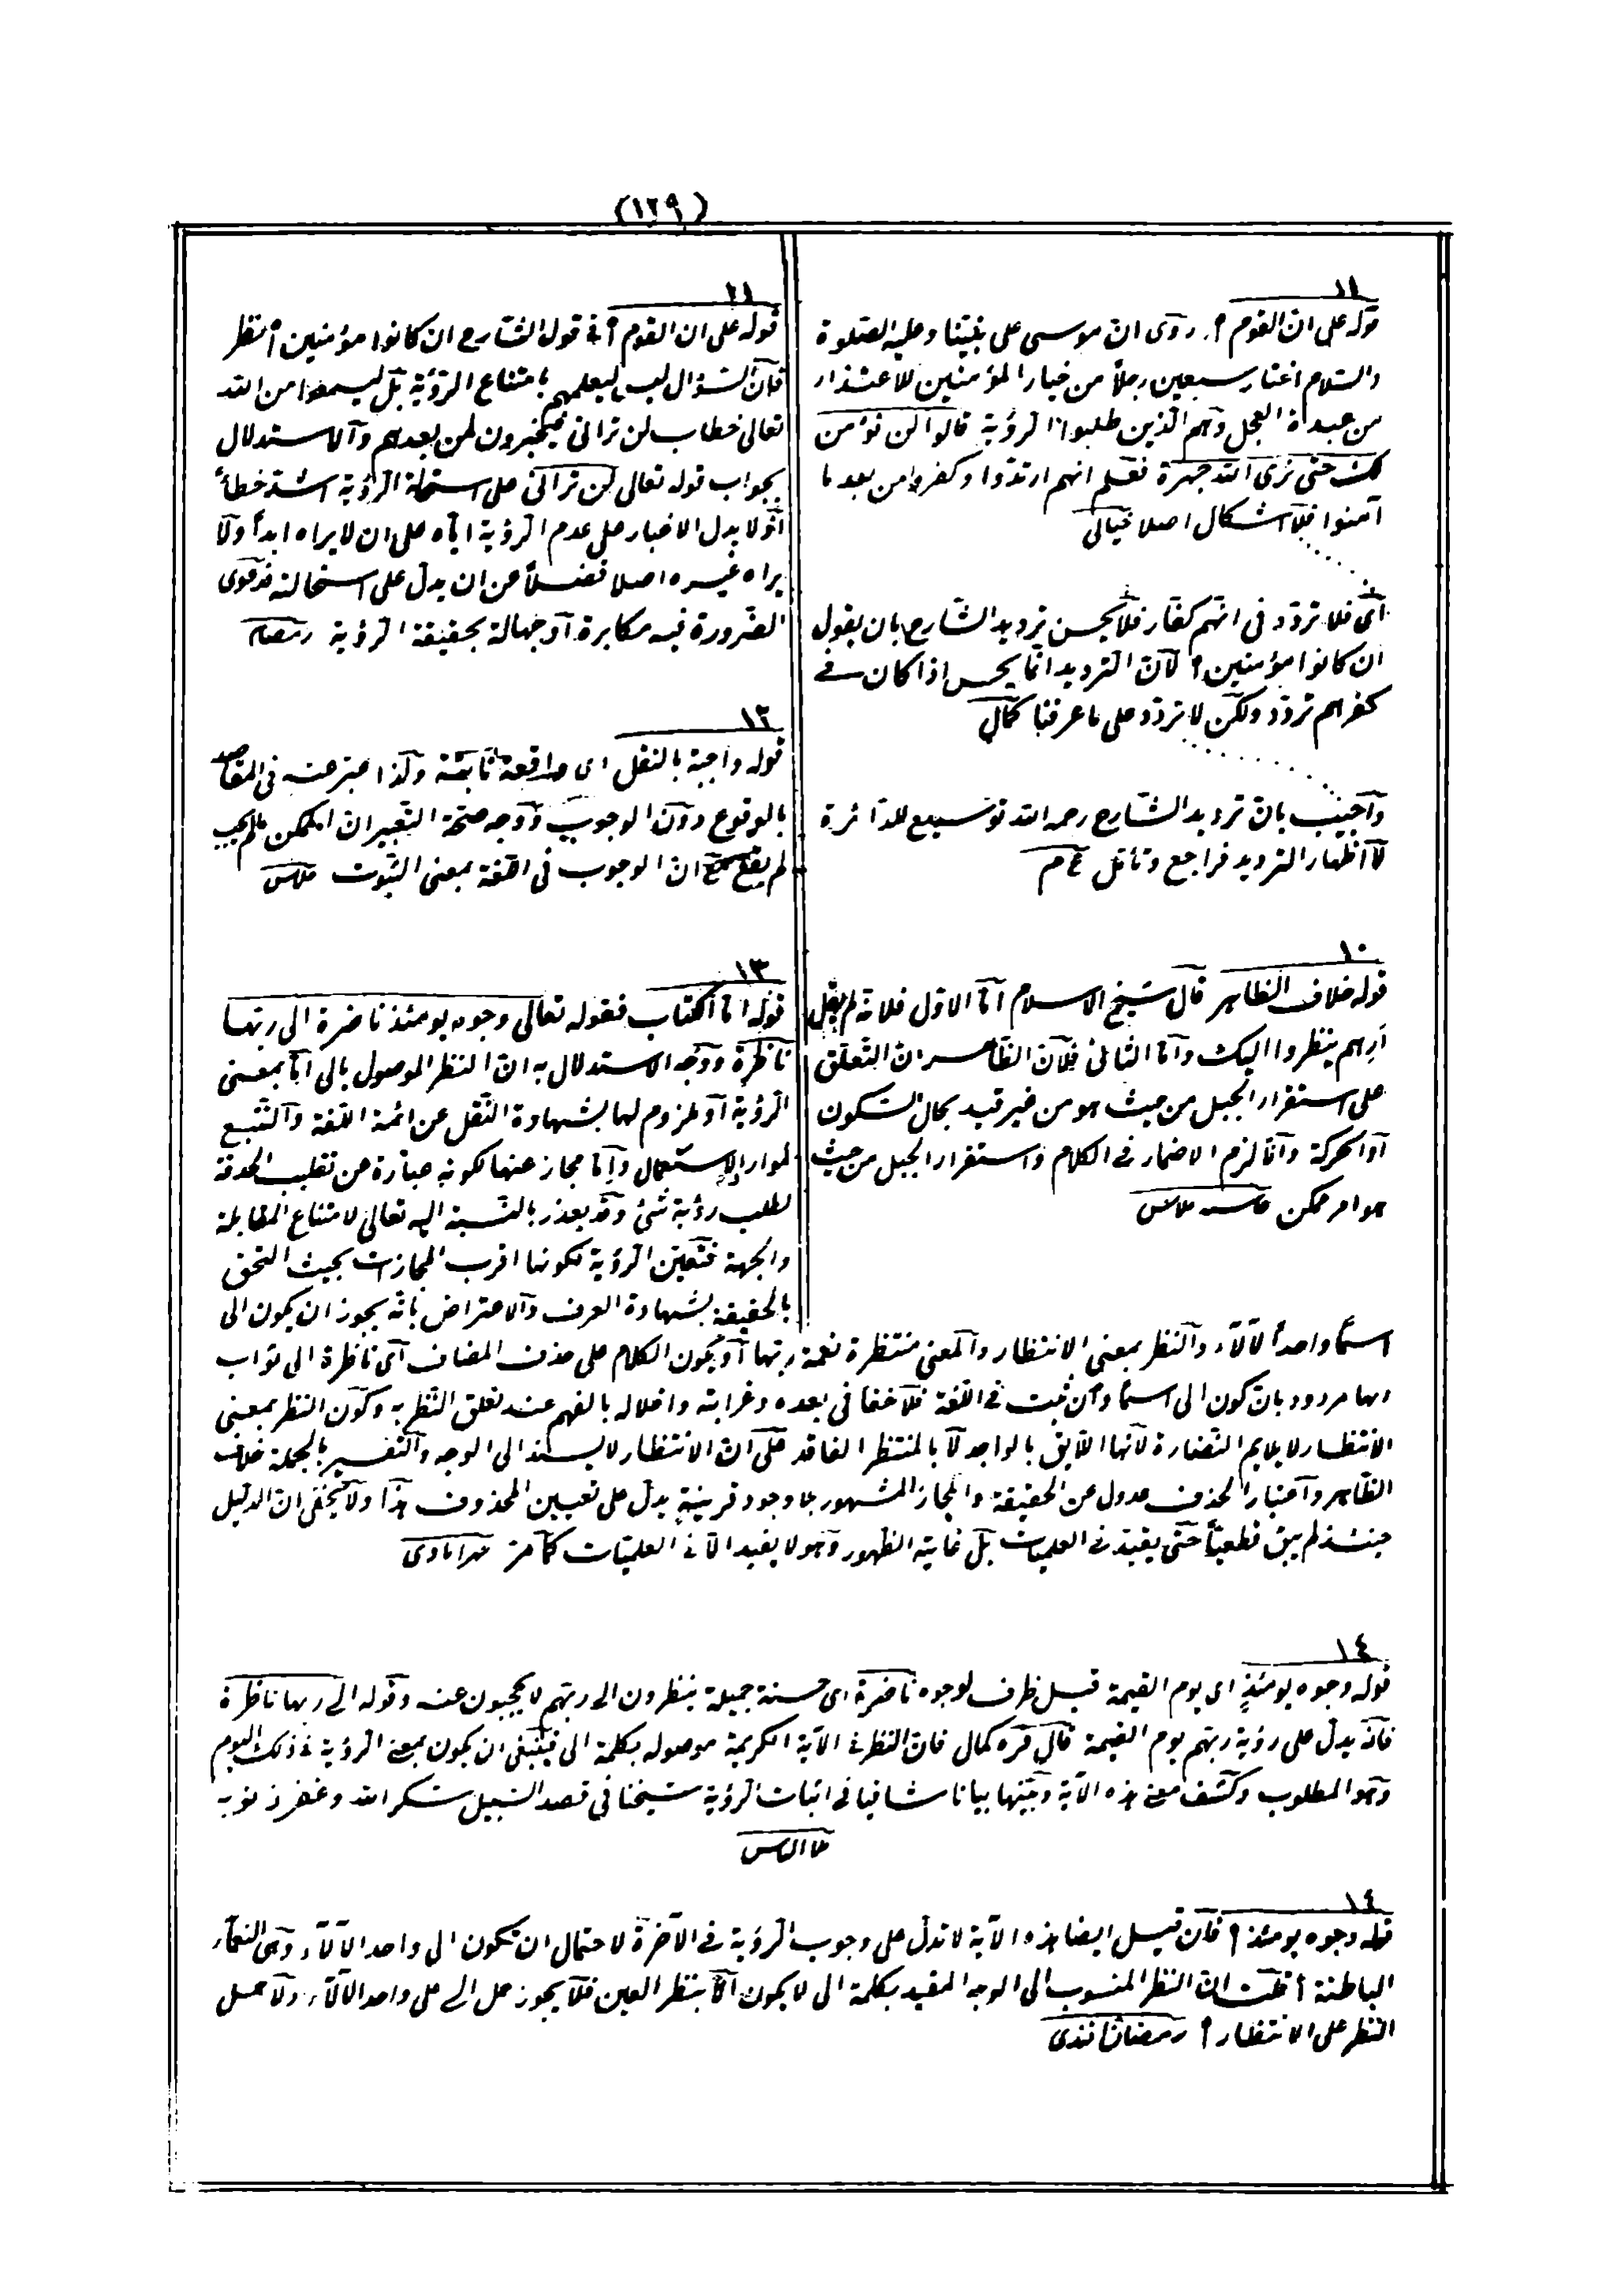 (١٢٩)
١١
قوله على ان القوم أ. روى ان موسى على نبينا وعليه الصلوة
والسلام اختار سبعين رجلاً من خيار المؤمنين للاعتذار
من عبدة العجل وهم الذين طلبوا الرؤية قالوا لن نؤمن
لك حتى نرى الله جهرة فعلم انهم ارتدوا وكفروا من بعد ما
آمنوا فلا اشكال اصلا خيالى
أى فلا تردّد فى انّهم كفّار فلا يحسن ترديد الشّارح بان يقول
ان كانوا مؤمنين أ لانّ الترديد انّما يحسن اذا كان فى
كفرهم تردّد ولكن لا تردّد على ما عرفنا كمال
واجيب بانّ ترديد الشّارح رحمه الله توسيع للدّائرة
لا اظهار الترديد فراجع وتأمّل
١٠
قوله خلاف الظاهر قال شيخ الاسلام امّا الاوّل فلانّه لم يقل
ارهم ينظروا اليك وامّا الثانى فلانّ الظّاهر ان التّعلّق
على استقرار الجبل من حيث هو من غير قيد بحال السّكون
او الحركة وانّما لزم الاضمار فى الكلام واستقرار الجبل من حيث
هو امر ممكن
١١
قوله على ان القوم أ فى قول الشارح ان كانوا مؤمنين أ نظر
فانّ السّؤال ليس ليعلمهم بامتناع الرّؤية بل ليسمعوا من الله
تعالى خطاب لن ترانى فيخبرون لمن بعدهم والاستدلال
بجواب قوله تعالى لن ترانى على استحالة الرؤية اشدّ خطأً
اذ لا يدل الاخبار على عدم الرؤية ايّاه على ان لا يراه ابداً ولا
يراه غيره اصلا فضلاً عن ان يدل على استحالته فدعوى
الضّرورة فيه مكابرة او جهالة بحقيقة الرؤية
١٢
قوله واجبة بالنقل اى واقعة ثابتة ولذا عبّر عنه فى المقاصد
بالوقوع دون الوجوب ووجه صحّة التّعبير ان الممكن مالم يجب
لم يقع مع ان الوجوب فى اللّغة بمعنى الثّبوت
١٣
قوله امّا الكتاب فقوله تعالى وجوه يومئذ ناضرة الى ربّها
ناظرة ووجه الاستدلال به ان النظر الموصول بالى امّا بمعنى
الرّؤية او ملزوم لها بشهادة النّقل عن ائمة اللّغة والتّتبع
لموارد الاستعمال وامّا مجاز عنها لكونه عبارة عن تقليب الحدقة
لطلب رؤية شئ وقد يعذر بالنّسبة اليه تعالى لامتناع المقابلة
والجهة فتعيّن الرّؤية لكونها اقرب المجازات بحيث التحق
بالحقيقة بشهادة العرف والاعتراض بانّه يجوز ان يكون الى
اسماً واحداً لآلاء والنّظر بمعنى الانتظار والمعنى منتظرة نعمة ربّها او يكون الكلام على حذف المضاف اى ناظرة الى ثواب
ربها مردود بانّ كون الى اسماً وان ثبت فى اللّغة فلا خفا فى بعده وغرابته واخلاله بالفهم عند تعلّق النّظر به وكون النظر بمعنى
الانتظار لا يلايم النّضارة لانّها اللّايق بالواجد لا بالمنتظر الفاقد على انّ الانتظار لا يسند الى الوجه والتفسير بالجملة خلاف
الظّاهر واعتبار الحذف عدول عن الحقيقة والمجاز المشهور بلا وجود قرينة يدلّ على تعيين المحذوف هذا ولا يخفى انّ الدليل
حينئذ لم يبق قطعيّاً حتّى يفيد فى العلميات بل غايته الظّهور وهو لا يفيد الّا فى العمليّات كما مرّ
١٤
قوله وجوه يومئذ اى يوم القيمة قيل ظرف لوجوه ناضرة اى حسنة جميلة ينظرون الى ربّهم لا يحجبون عنه وقوله الى ربها ناظرة
فانّه يدلّ على رؤية ربّهم يوم القيمة قال قره كمال فانّ النّظر فى الآية الكريمة موصوله بكلمة الى فينبغى ان يكون بمعنى الرّؤية فى ذلك اليوم
وهو المطلوب وكشف معنى هذه الآية وبيّنها بيانا شافيا فى اثبات الرّؤية شيخنا فى قصد السّبيل شكر الله وغفر ذنوبه
ملا الياس
١٤
قوله وجوه يومئذ أ فان قيل ايضا هذه الآية لا تدلّ على وجوب الرّؤية فى الآخرة لاحتمال ان تكون الى واحد الآلاء وهى النعماء
الباطنة أ قلت انّ النّظر المنسوب الى الوجه المقيد بكلمة الى لا يكون الّا بنظر العين فلا يجوز حمل الى على واحد الآلاء ولا حمل
النّظر على الانتظار أ رمضان افندى